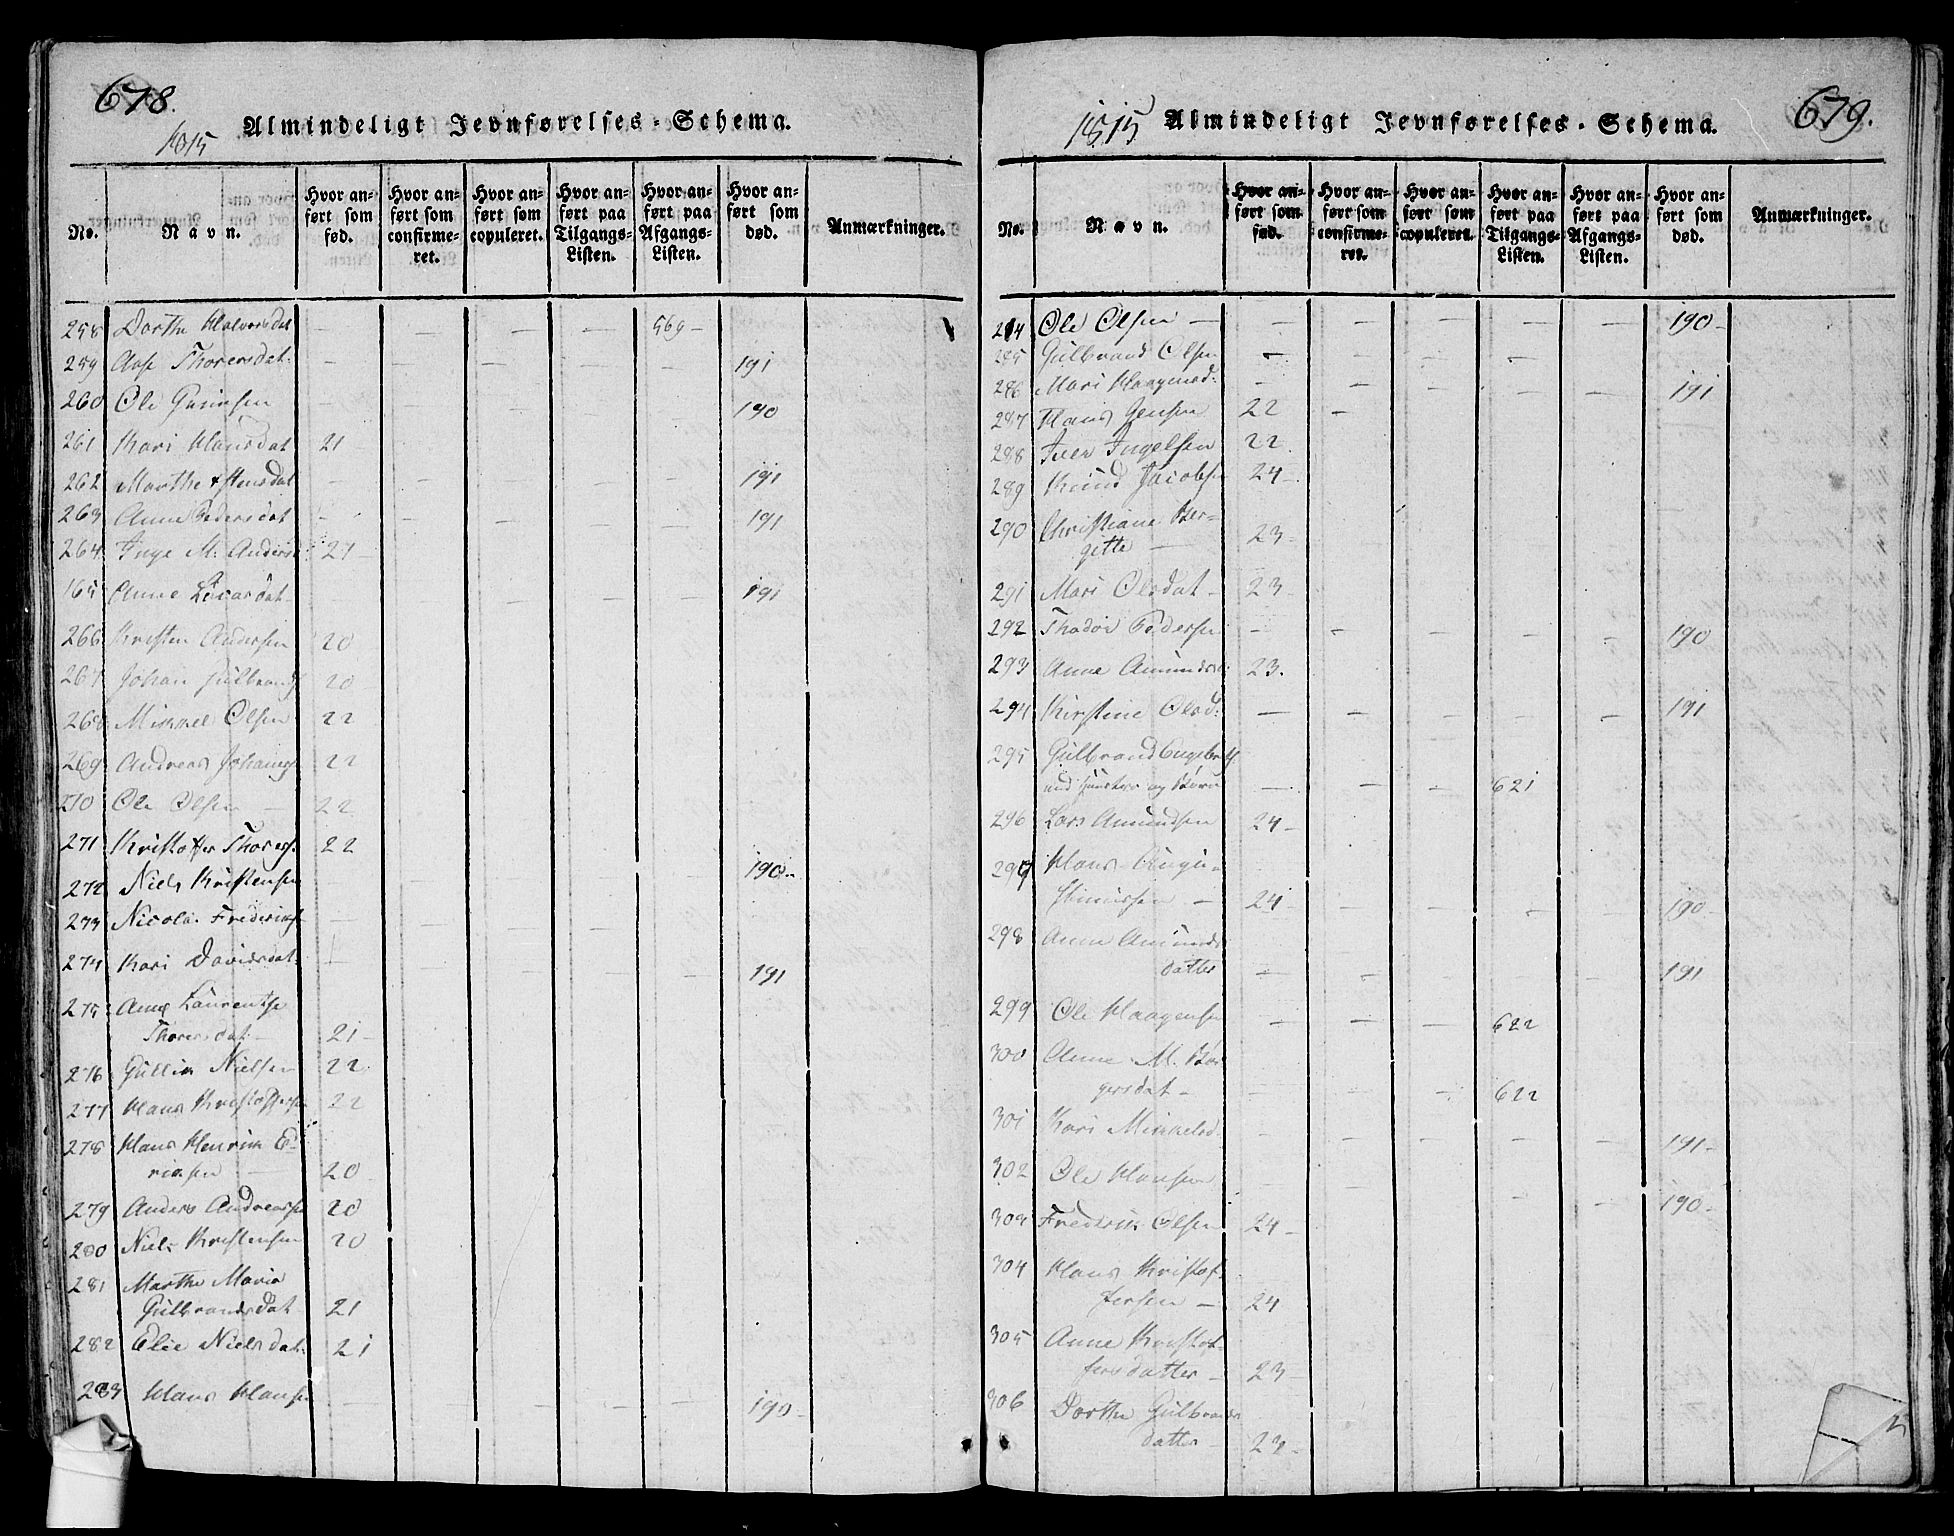 678.
Almindeligt Jevnførelses-Schema.
1815
No.
Navn.
Hvor anført som fød.
Hvor anført som confirmeret.
Hvor anført som copuleret.
Hvor anført paa Tilgangs-Listen.
Hvor anført paa Afgangs-Listen.
Hvor anført som død.
Anmærkninger.
258 Dorthe Halvorsdat — — — — 569 —
259 Aase Thorersdat — — — — — 191
260 Ole — — — — — 190
261 Kari Hansdat 21
262 Marthe — — — — — 191
263 Anne Pedersdat — — — — — 191
264 Inge M. Andersd 21 —
165 Anne Lucasdat — — — — — 191
266 Kristen Andersen 20
267 Johan Gulbrands 20
268 Mikkel Olsen 22
269 Andreas Johannes 22
270 Ole Olsen — 22
271 Kristoffer Thorers. 22
272 Niels Kristensen — — — — — 190 —
273 Nicolai Frederiks —
274 Kari Davidsdat — — — — — 191
275 Anne Laurentse
Thorersdat — 21 —
276 Gullik Nielsen 22
277 Hans Kristoffersen 22
278 Hans Henrik E-
riksen — 20
279 Anders Andreassen 20
280 Niels Kristensen 20
281 Marthe Maria
Gulbrandsdat 21
282 Elie Nielsdat 21
283 Hans Hansen — — — — — 190 —
1815 Almindeligt Jevnførelses-Schema. 679.
No.
Navn.
Hvor anført som fød.
Hvor anført som confirmeret.
Hvor anført som copuleret.
Hvor anført paa Tilgangs-Listen.
Hvor anført paa Afgangs-Listen.
Hvor anført som død.
Anmærkninger.
284 Ole Olsen — — — — — — 190 —
285 Gulbrand Olsen — — — —
286 Mari Haagensd: — — — — — 191
287 Hans Jensen 22 —
288 Iver Ingelsen 22
289 Knud Jacobsen 24 —
290 Christiane Ber-
gitte — 23 —
291 Mari Olsdat — 23 —
292 Thodor Pedersen — — — — — 190
293 Anne Amundsd: 23.
294 Kirstine Olsd: — — — — — 191
295 Gulbrand Engebrets
med Hustru og Børn — — — 621
296 Lars Amundsen 24 —
297 Hans Augu-
stinussen — 24 — — — — 190 —
298 Anne Amunds
datter — — — — — 191
299 Ole Haagensen — — — 622
300 Anne M. Bir
gersdat — — — — 622
301 Kari Mikkelsd. — — — — — 191 —
302 Ole Hansen — — — — — 190 —
303 Fredrik Olsen 24 —
304 Hans Kristof-
fersen — 24
305 Anne Kristof-
fersdatter — 23 —
306 Dorthe Gulbrands
datter — 23 —